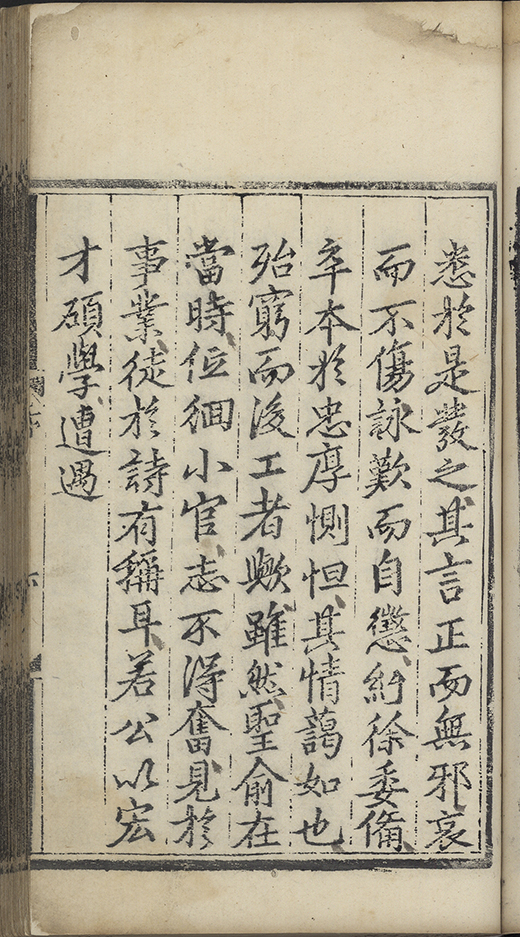 悉於是發之其言正而無邪哀
而不傷詠歎而自懲紆徐委備
卒本於忠厚惻怛其情藹如也
殆窮而後工者歟雖然聖俞在
當時位徊小官志不得奮見於
事業徒於詩有稱耳若公以宏
才碩學遭遇